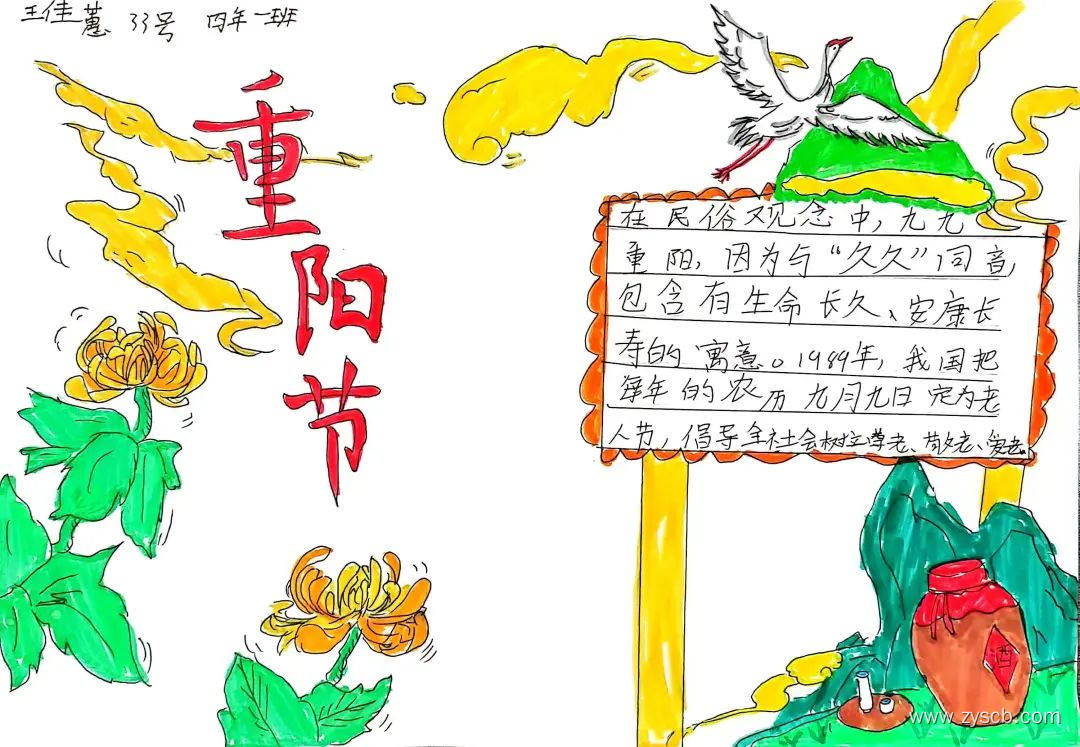 王佳蕙 33号 四年一班
重阳节
在民俗观念中，九九
重阳，因为与“久久”同音，
包含有生命长久、安康长
寿的寓意。1989年，我国把
每年的农历九月九日定为老
人节，倡导全社会树立尊老、敬老、爱老
酒
www.zyscb.com